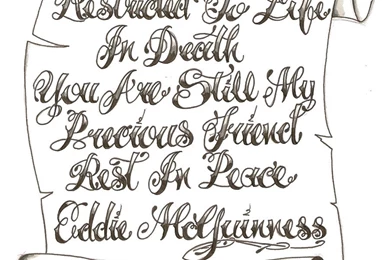 Restricted To Life
In Death
You Are Still My
Precious Friend
Rest In Peace
Eddie McGuinness